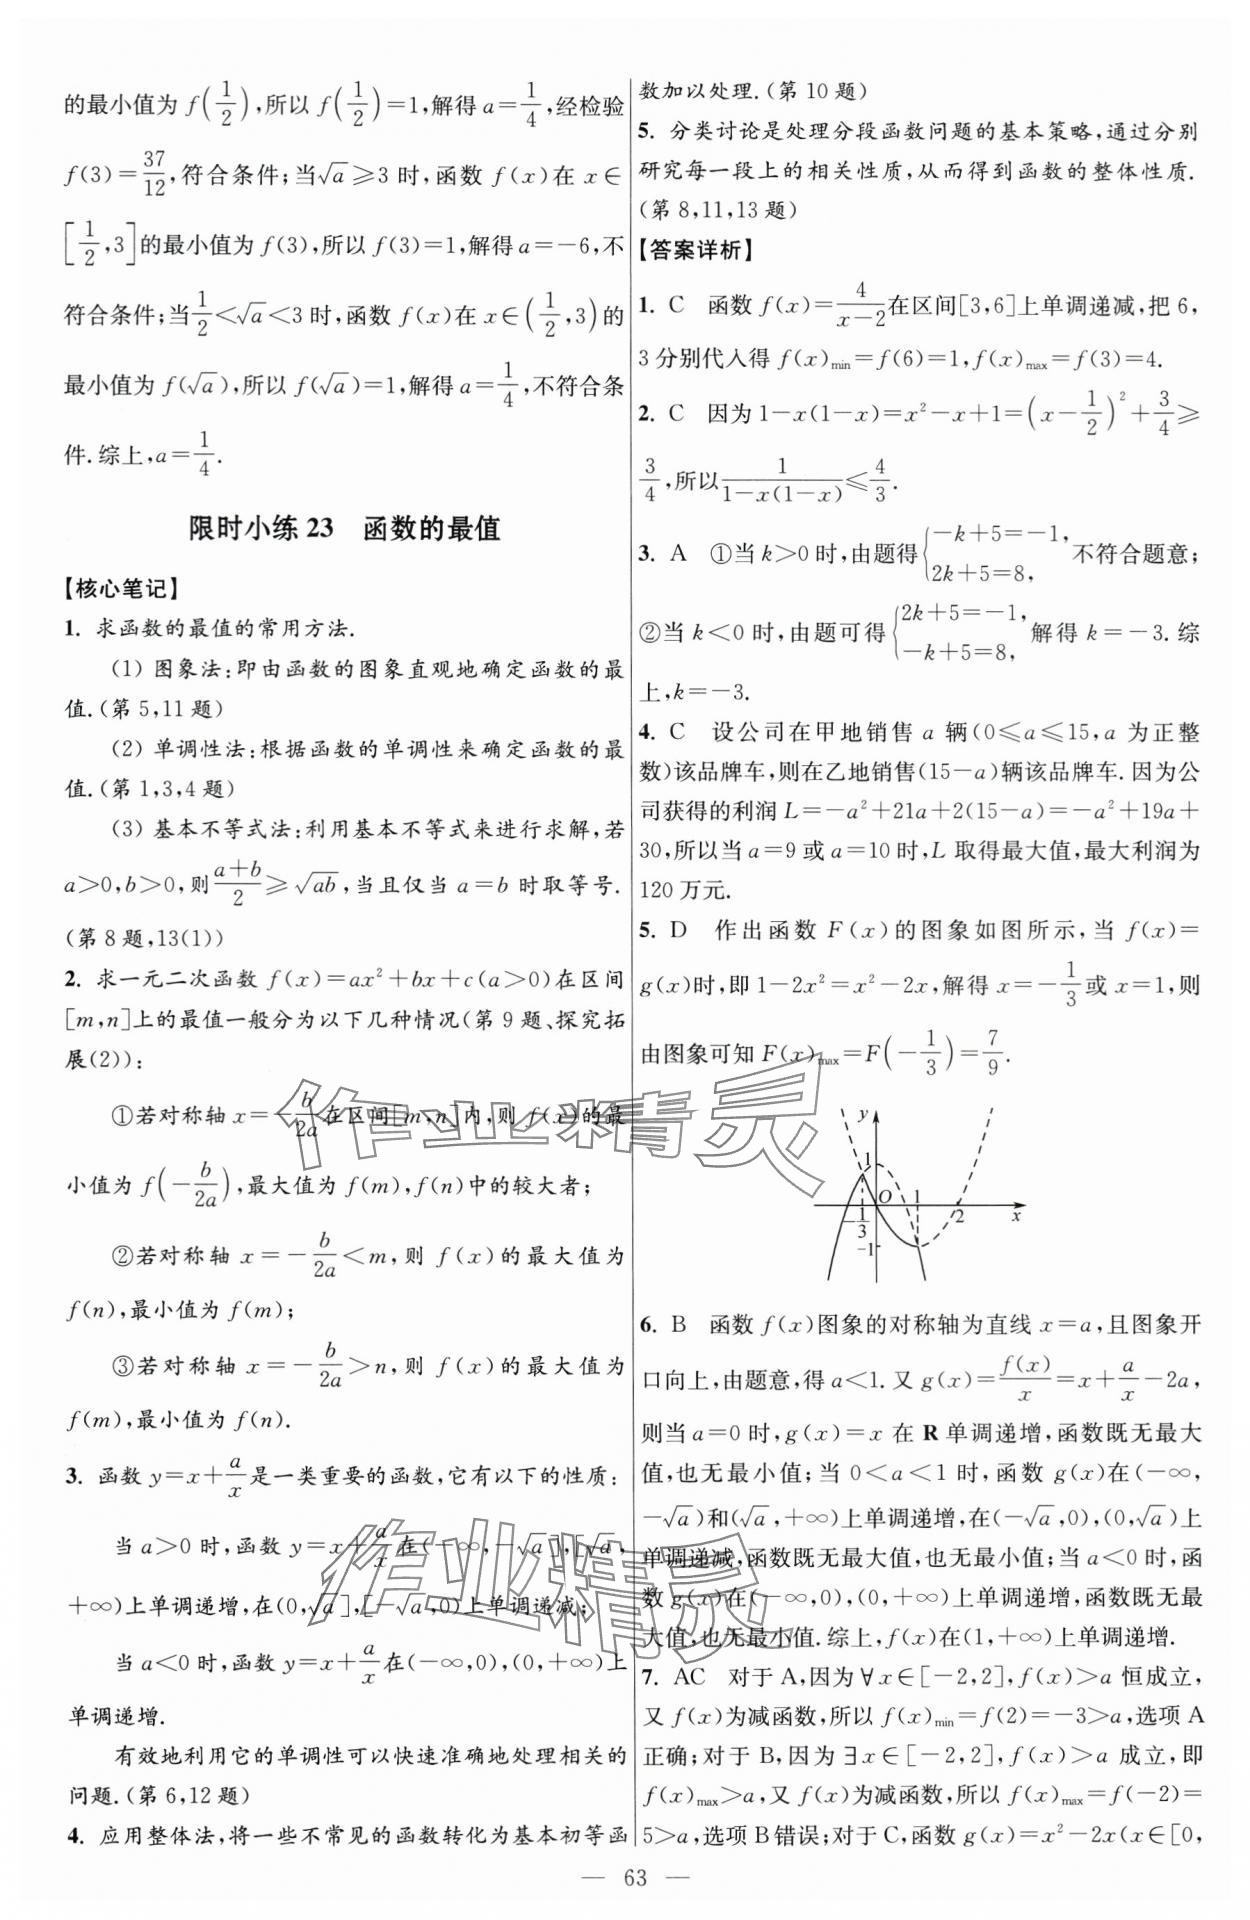 的最小值为 f(1/2),所以 f(1/2)=1,解得 a=1/4,经检验
f(3)=37/12,符合条件;当√a≥3 时,函数 f(x)在 x∈
[1/2,3]的最小值为 f(3),所以 f(3)=1,解得 a=-6,不
符合条件;当1/2<√a<3 时,函数 f(x)在 x∈(1/2,3)的
最小值为 f(√a),所以 f(√a)=1,解得 a=1/4,不符合条
件.综上,a=1/4.
限时小练 23 函数的最值
【核心笔记】
1. 求函数的最值的常用方法.
(1) 图象法:即由函数的图象直观地确定函数的最
值.(第 5,11 题)
(2) 单调性法:根据函数的单调性来确定函数的最
值.(第 1,3,4 题)
(3) 基本不等式法:利用基本不等式来进行求解,若
a>0,b>0,则(a+b)/2≥√ab,当且仅当 a=b 时取等号.
(第 8 题,13(1))
2. 求一元二次函数 f(x)=ax²+bx+c(a>0)在区间
[m,n]上的最值一般分为以下几种情况(第 9 题、探究拓
展(2)):
①若对称轴 x=-b/2a在区间[m,n]内,则 f(x)的最
小值为 f(-b/2a),最大值为 f(m),f(n)中的较大者;
②若对称轴 x=-b/2a<m,则 f(x)的最大值为
f(n),最小值为 f(m);
③若对称轴 x=-b/2a>n,则 f(x)的最大值为
f(m),最小值为 f(n).
3. 函数 y=x+a/x是一类重要的函数,它有以下的性质:
当 a>0 时,函数 y=x+a/x在(-∞,-√a],[√a,
+∞)上单调递增,在(0,√a],[-√a,0)上单调递减;
当 a<0 时,函数 y=x+a/x在(-∞,0),(0,+∞)上
单调递增.
有效地利用它的单调性可以快速准确地处理相关的
问题.(第 6,12 题)
4. 应用整体法,将一些不常见的函数转化为基本初等函
数加以处理.(第 10 题)
5. 分类讨论是处理分段函数问题的基本策略,通过分别
研究每一段上的相关性质,从而得到函数的整体性质.
(第 8,11,13 题)
【答案详析】
1. C 函数 f(x)=4/(x-2)在区间[3,6]上单调递减,把 6,
3 分别代入得 f(x)min=f(6)=1,f(x)max=f(3)=4.
2. C 因为 1-x(1-x)=x²-x+1=(x-1/2)²+3/4≥
3/4,所以1/(1-x(1-x))≤4/3.
3. A ①当 k>0 时,由题得{-k+5=-1, 2k+5=8, 不符合题意;
②当 k<0 时,由题可得{2k+5=-1, -k+5=8, 解得 k=-3.综
上,k=-3.
4. C 设公司在甲地销售 a 辆(0≤a≤15,a 为正整
数)该品牌车,则在乙地销售(15-a)辆该品牌车.因为公
司获得的利润 L=-a²+21a+2(15-a)=-a²+19a+
30,所以当 a=9 或 a=10 时,L 取得最大值,最大利润为
120 万元.
5. D 作出函数 F(x)的图象如图所示,当 f(x)=
g(x)时,即 1-2x²=x²-2x,解得 x=-1/3或 x=1,则
由图象可知 F(x)max=F(-1/3)=7/9.
y
1
O 1 2 x
-1/3
-1
6. B 函数 f(x)图象的对称轴为直线 x=a,且图象开
口向上,由题意,得 a<1.又 g(x)=f(x)/x=x+a/x-2a,
则当 a=0 时,g(x)=x 在 R 单调递增,函数既无最大
值,也无最小值;当 0<a<1 时,函数 g(x)在(-∞,
-√a)和(√a,+∞)上单调递增,在(-√a,0),(0,√a)上
单调递减,函数既无最大值,也无最小值;当 a<0 时,函
数 g(x)在(-∞,0),(0,+∞)上单调递增,函数既无最
大值,也无最小值.综上,f(x)在(1,+∞)上单调递增.
7. AC 对于 A,因为∀x∈[-2,2],f(x)>a 恒成立,
又 f(x)为减函数,所以 f(x)min=f(2)=-3>a,选项 A
正确;对于 B,因为∃x∈[-2,2],f(x)>a 成立,即
f(x)max>a,又 f(x)为减函数,所以 f(x)max=f(-2)=
5>a,选项 B 错误;对于 C,函数 g(x)=x²-2x(x∈[0,
— 63 —
作业精灵
作业精灵